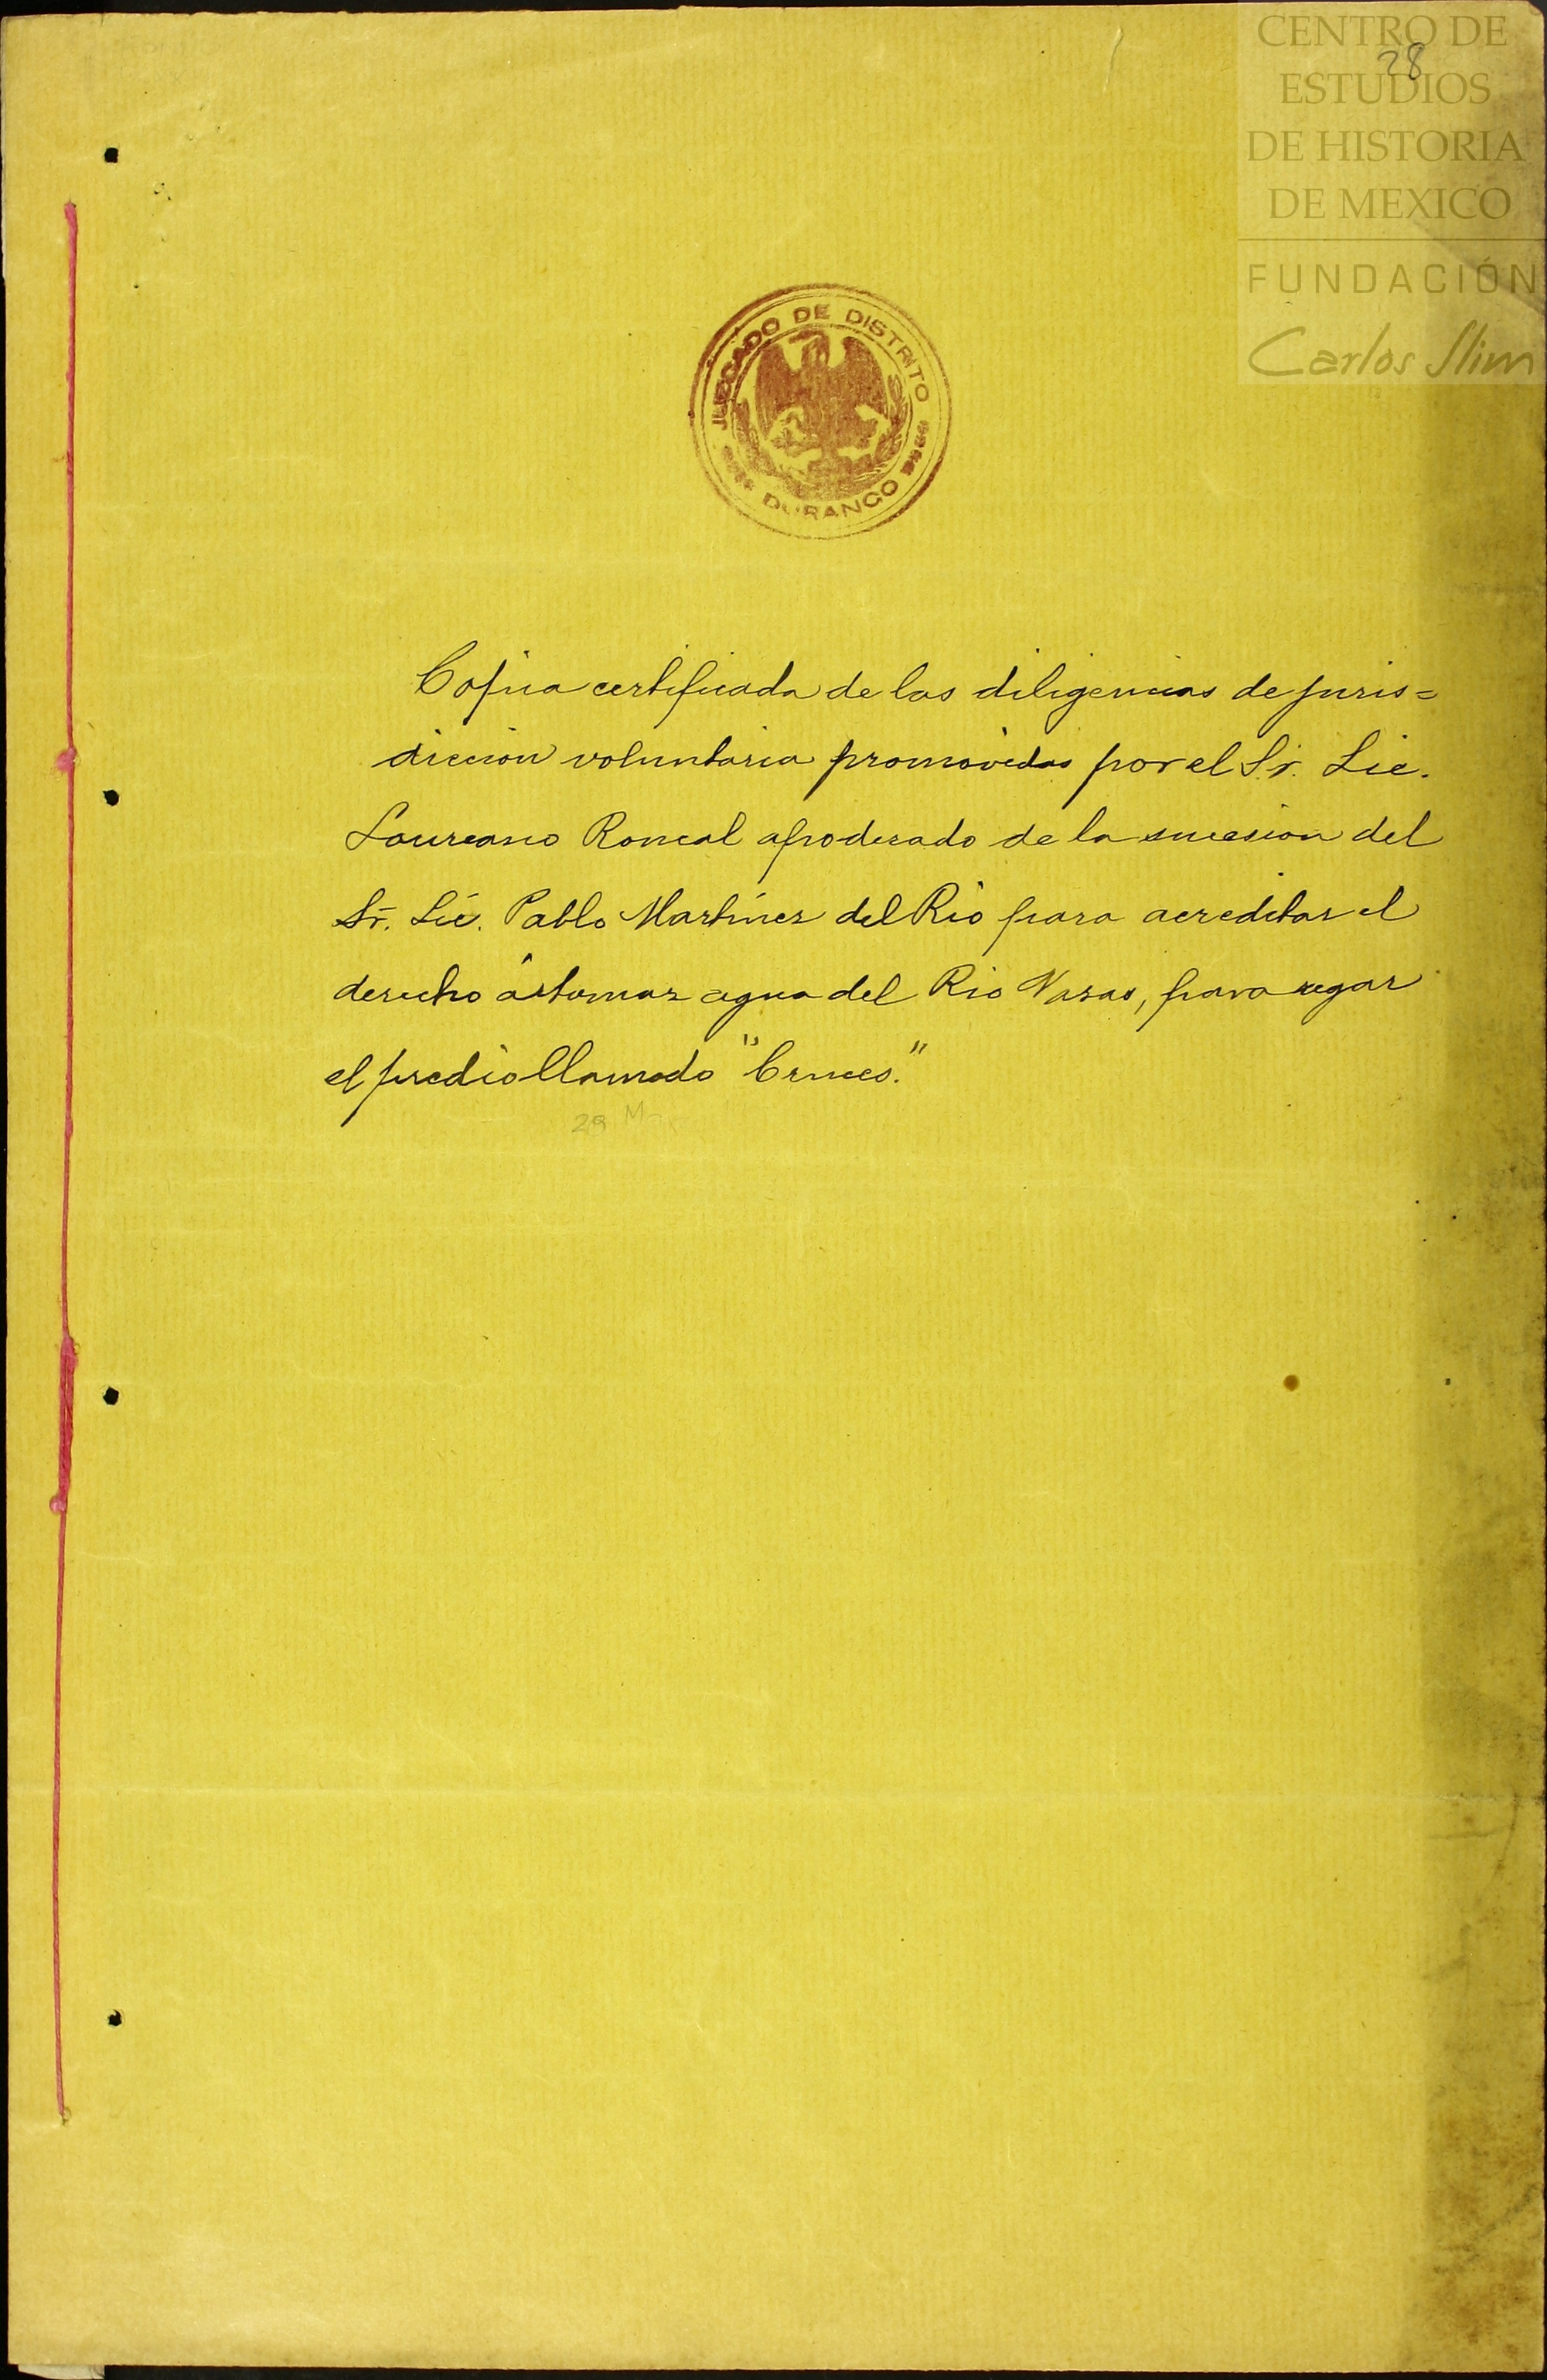 28
CENTRO DE
ESTUDIOS
DE HISTORIA
DE MEXICO
FUNDACIÓN
Carlos Slim
JUZGADO DE DISTRITO
DURANGO
Copia certificada de las diligencias de juris=
dicción voluntaria promovidas por el Sr. Lic.
Laureano Roncal apoderado de la sucesion del
Sr. Lic. Pablo Martinez del Rio para acreditar el
derecho á tomar agua del Rio Nazas, para regar
el predio llamado "Cruces."
29